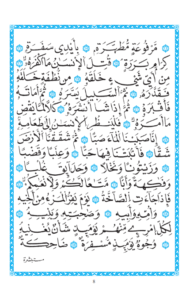 مَّرْفُوعَةٍ مُّطَهَّرَةٍ ۝ بِأَيْدِى سَفَرَةٍ ۝
كِرَامٍ بَرَرَةٍ ۝ قُتِلَ ٱلْإِنسَٰنُ مَآ أَكْفَرَهُۥ ۝
مِنْ أَىِّ شَىْءٍ خَلَقَهُۥ ۝ مِن نُّطْفَةٍ خَلَقَهُۥ
فَقَدَّرَهُۥ ۝ ثُمَّ ٱلسَّبِيلَ يَسَّرَهُۥ ۝ ثُمَّ أَمَاتَهُۥ
فَأَقْبَرَهُۥ ۝ ثُمَّ إِذَا شَآءَ أَنشَرَهُۥ ۝ كَلَّا لَمَّا يَقْضِ
مَآ أَمَرَهُۥ ۝ فَلْيَنظُرِ ٱلْإِنسَٰنُ إِلَىٰ طَعَامِهِۦٓ ۝
أَنَّا صَبَبْنَا ٱلْمَآءَ صَبًّا ۝ ثُمَّ شَقَقْنَا ٱلْأَرْضَ
شَقًّا ۝ فَأَنۢبَتْنَا فِيهَا حَبًّا ۝ وَعِنَبًا وَقَضْبًا ۝
وَزَيْتُونًا وَنَخْلًا ۝ وَحَدَآئِقَ غُلْبًا ۝
وَفَٰكِهَةً وَأَبًّا ۝ مَّتَٰعًا لَّكُمْ وَلِأَنْعَٰمِكُمْ ۝
فَإِذَا جَآءَتِ ٱلصَّآخَّةُ ۝ يَوْمَ يَفِرُّ ٱلْمَرْءُ مِنْ أَخِيهِ ۝
وَأُمِّهِۦ وَأَبِيهِ ۝ وَصَٰحِبَتِهِۦ وَبَنِيهِ ۝
لِكُلِّ ٱمْرِئٍ مِّنْهُمْ يَوْمَئِذٍ شَأْنٌ يُغْنِيهِ ۝
وُجُوهٌ يَوْمَئِذٍ مُّسْفِرَةٌ ۝ ضَاحِكَةٌ
مستبشرة